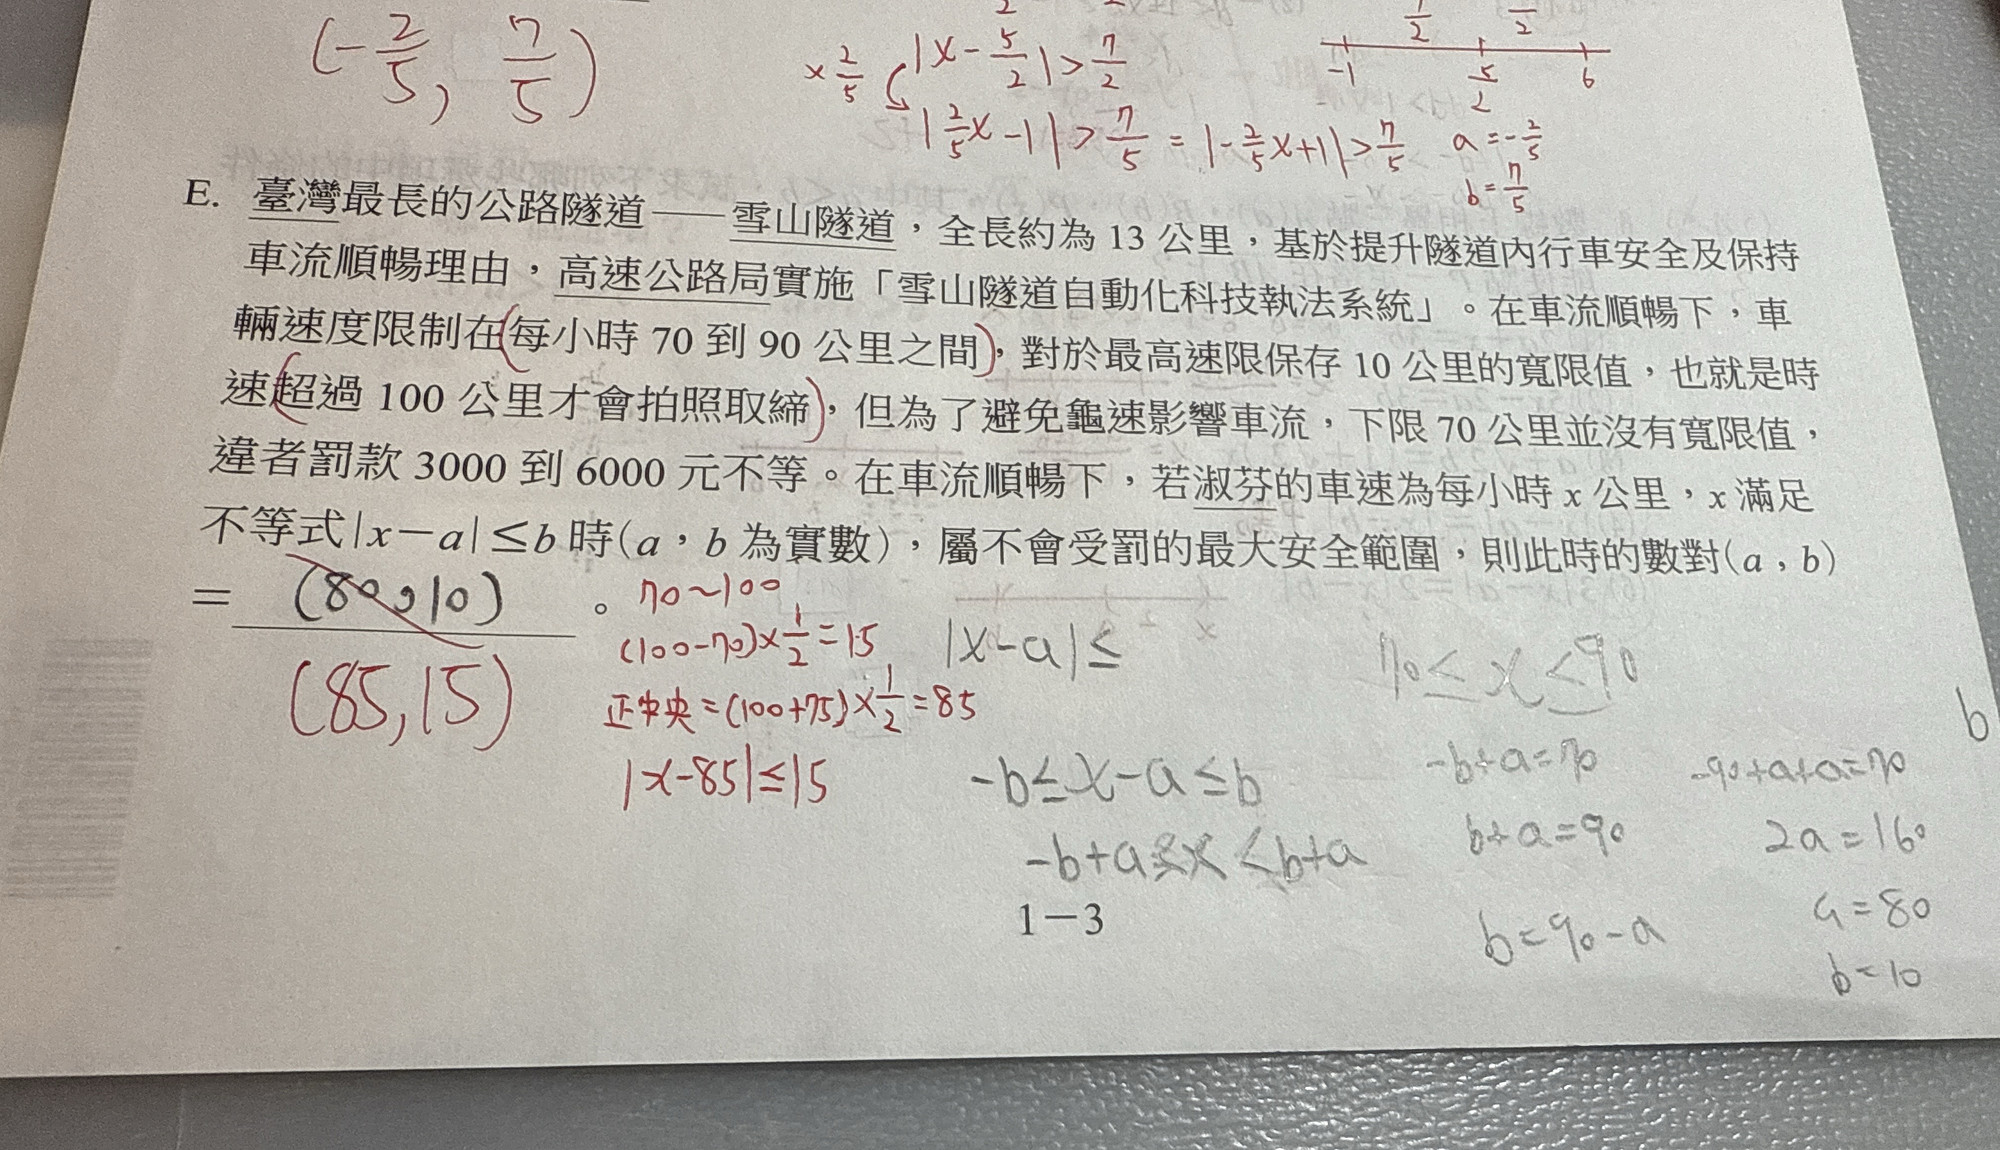 (-2/5, 7/5)
×2/5 |x-5/2|>7/2
|2/5x-1|>7/5 = |-2/5x+1|>7/5
1/2
2
-1 5/2 6
a=-2/5
b=7/5
E. 臺灣最長的公路隧道——雪山隧道，全長約為 13 公里，基於提升隧道內行車安全及保持
車流順暢理由，高速公路局實施「雪山隧道自動化科技執法系統」。在車流順暢下，車
輛速度限制在(每小時 70 到 90 公里之間)，對於最高速限保存 10 公里的寬限值，也就是時
速(超過 100 公里才會拍照取締)，但為了避免龜速影響車流，下限 70 公里並沒有寬限值，
違者罰款 3000 到 6000 元不等。在車流順暢下，若淑芬的車速為每小時 x 公里，x 滿足
不等式|x-a|≤b 時(a，b 為實數)，屬不會受罰的最大安全範圍，則此時的數對(a，b)
= (80,10) 。
(85,15)
70~100
(100-70)×1/2=15
正中央=(100+75)×1/2=85
|x-85|≤15
|x-a|≤
-b≤x-a≤b
-b+a≤x≤b+a
70≤x≤90
-b+a=70
b+a=90
b=90-a
-90+a+a=70
2a=160
a=80
b=10
b
1-3